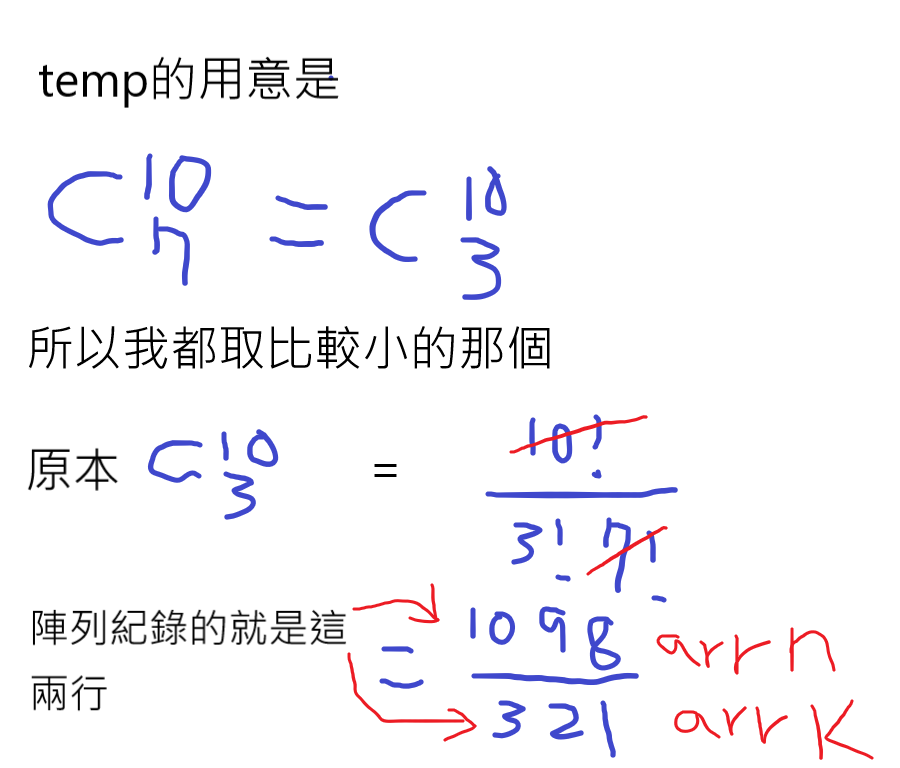 temp的用意是
C 10 7 = C 10 3
所以我都取比較小的那個
原本 C 10 3 = 10! / 3! 7!
陣列紀錄的就是這
兩行
= 10 9 8 / 3 2 1
arr n
arr k